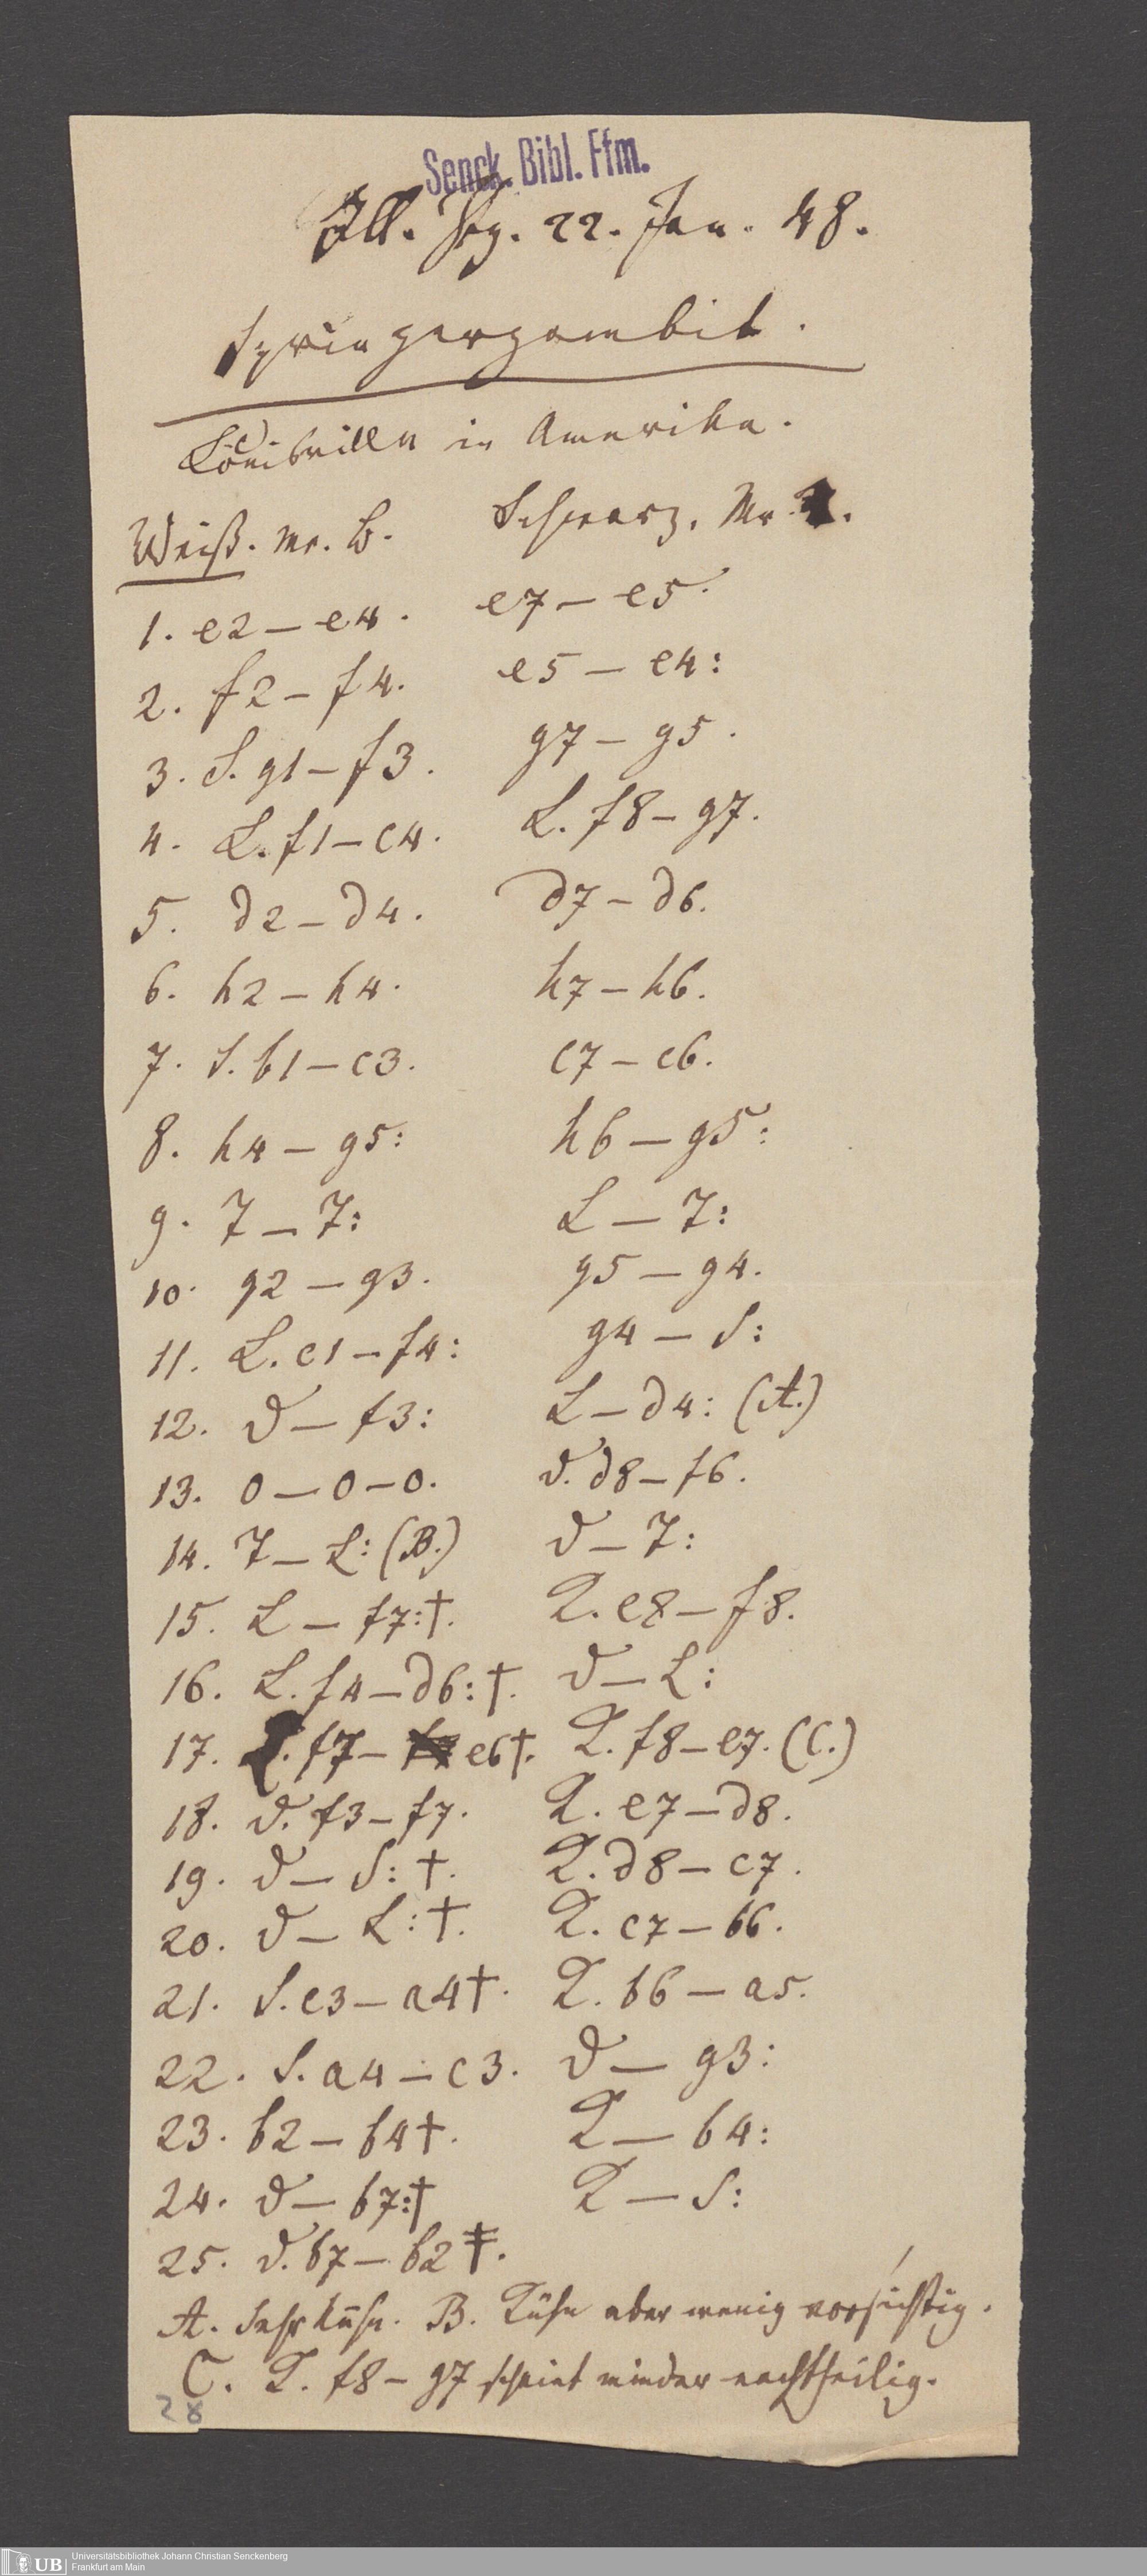 Senck. Bibl. Ffm.
Ill. Ztg. 22. Jan. 48.
Springergambit.
Louisville in Amerika.
Weiß. Mr. B. Schwarz. Mr.
1. e2 – e4. e7 – e5.
2. f2 – f4. e5 – e4:
3. S. g1 – f3. g7 – g5.
4. L. f1 – c4. L. f8 – g7.
5. d2 – d4. d7 – d6.
6. h2 – h4. h7 – h6.
7. S. b1 – c3. c7 – c6.
8. h4 – g5: h6 – g5:
9. T – T: L – T:
10. g2 – g3. g5 – g4.
11. L. c1 – f4: g4 – S:
12. D – f3: L – d4: (A.)
13. 0 – 0 – 0. D. d8 – f6.
14. T – L: (B.) D – T:
15. L – f7:†. K. e8 – f8.
16. L. f4 – d6:†. D – L:
17. L. f7 – e6†. K. f8 – e7. (C.)
18. D. f3 – f7. K. e7 – d8.
19. D – S: †. K. d8 – c7.
20. D – L: †. K. c7 – b6.
21. S. c3 – a4†. K. b6 – a5.
22. S. a4 – c3. D – g3:
23. b2 – b4†. K – b4:
24. D – b7:† K – S:
25. D. b7 – b2‡.
A. Sehr kühn. B. Kühn aber wenig vorsichtig.
C. K. f8 – g7 scheint minder nachtheilig.
28
UB Universitätsbibliothek Johann Christian Senckenberg
Frankfurt am Main